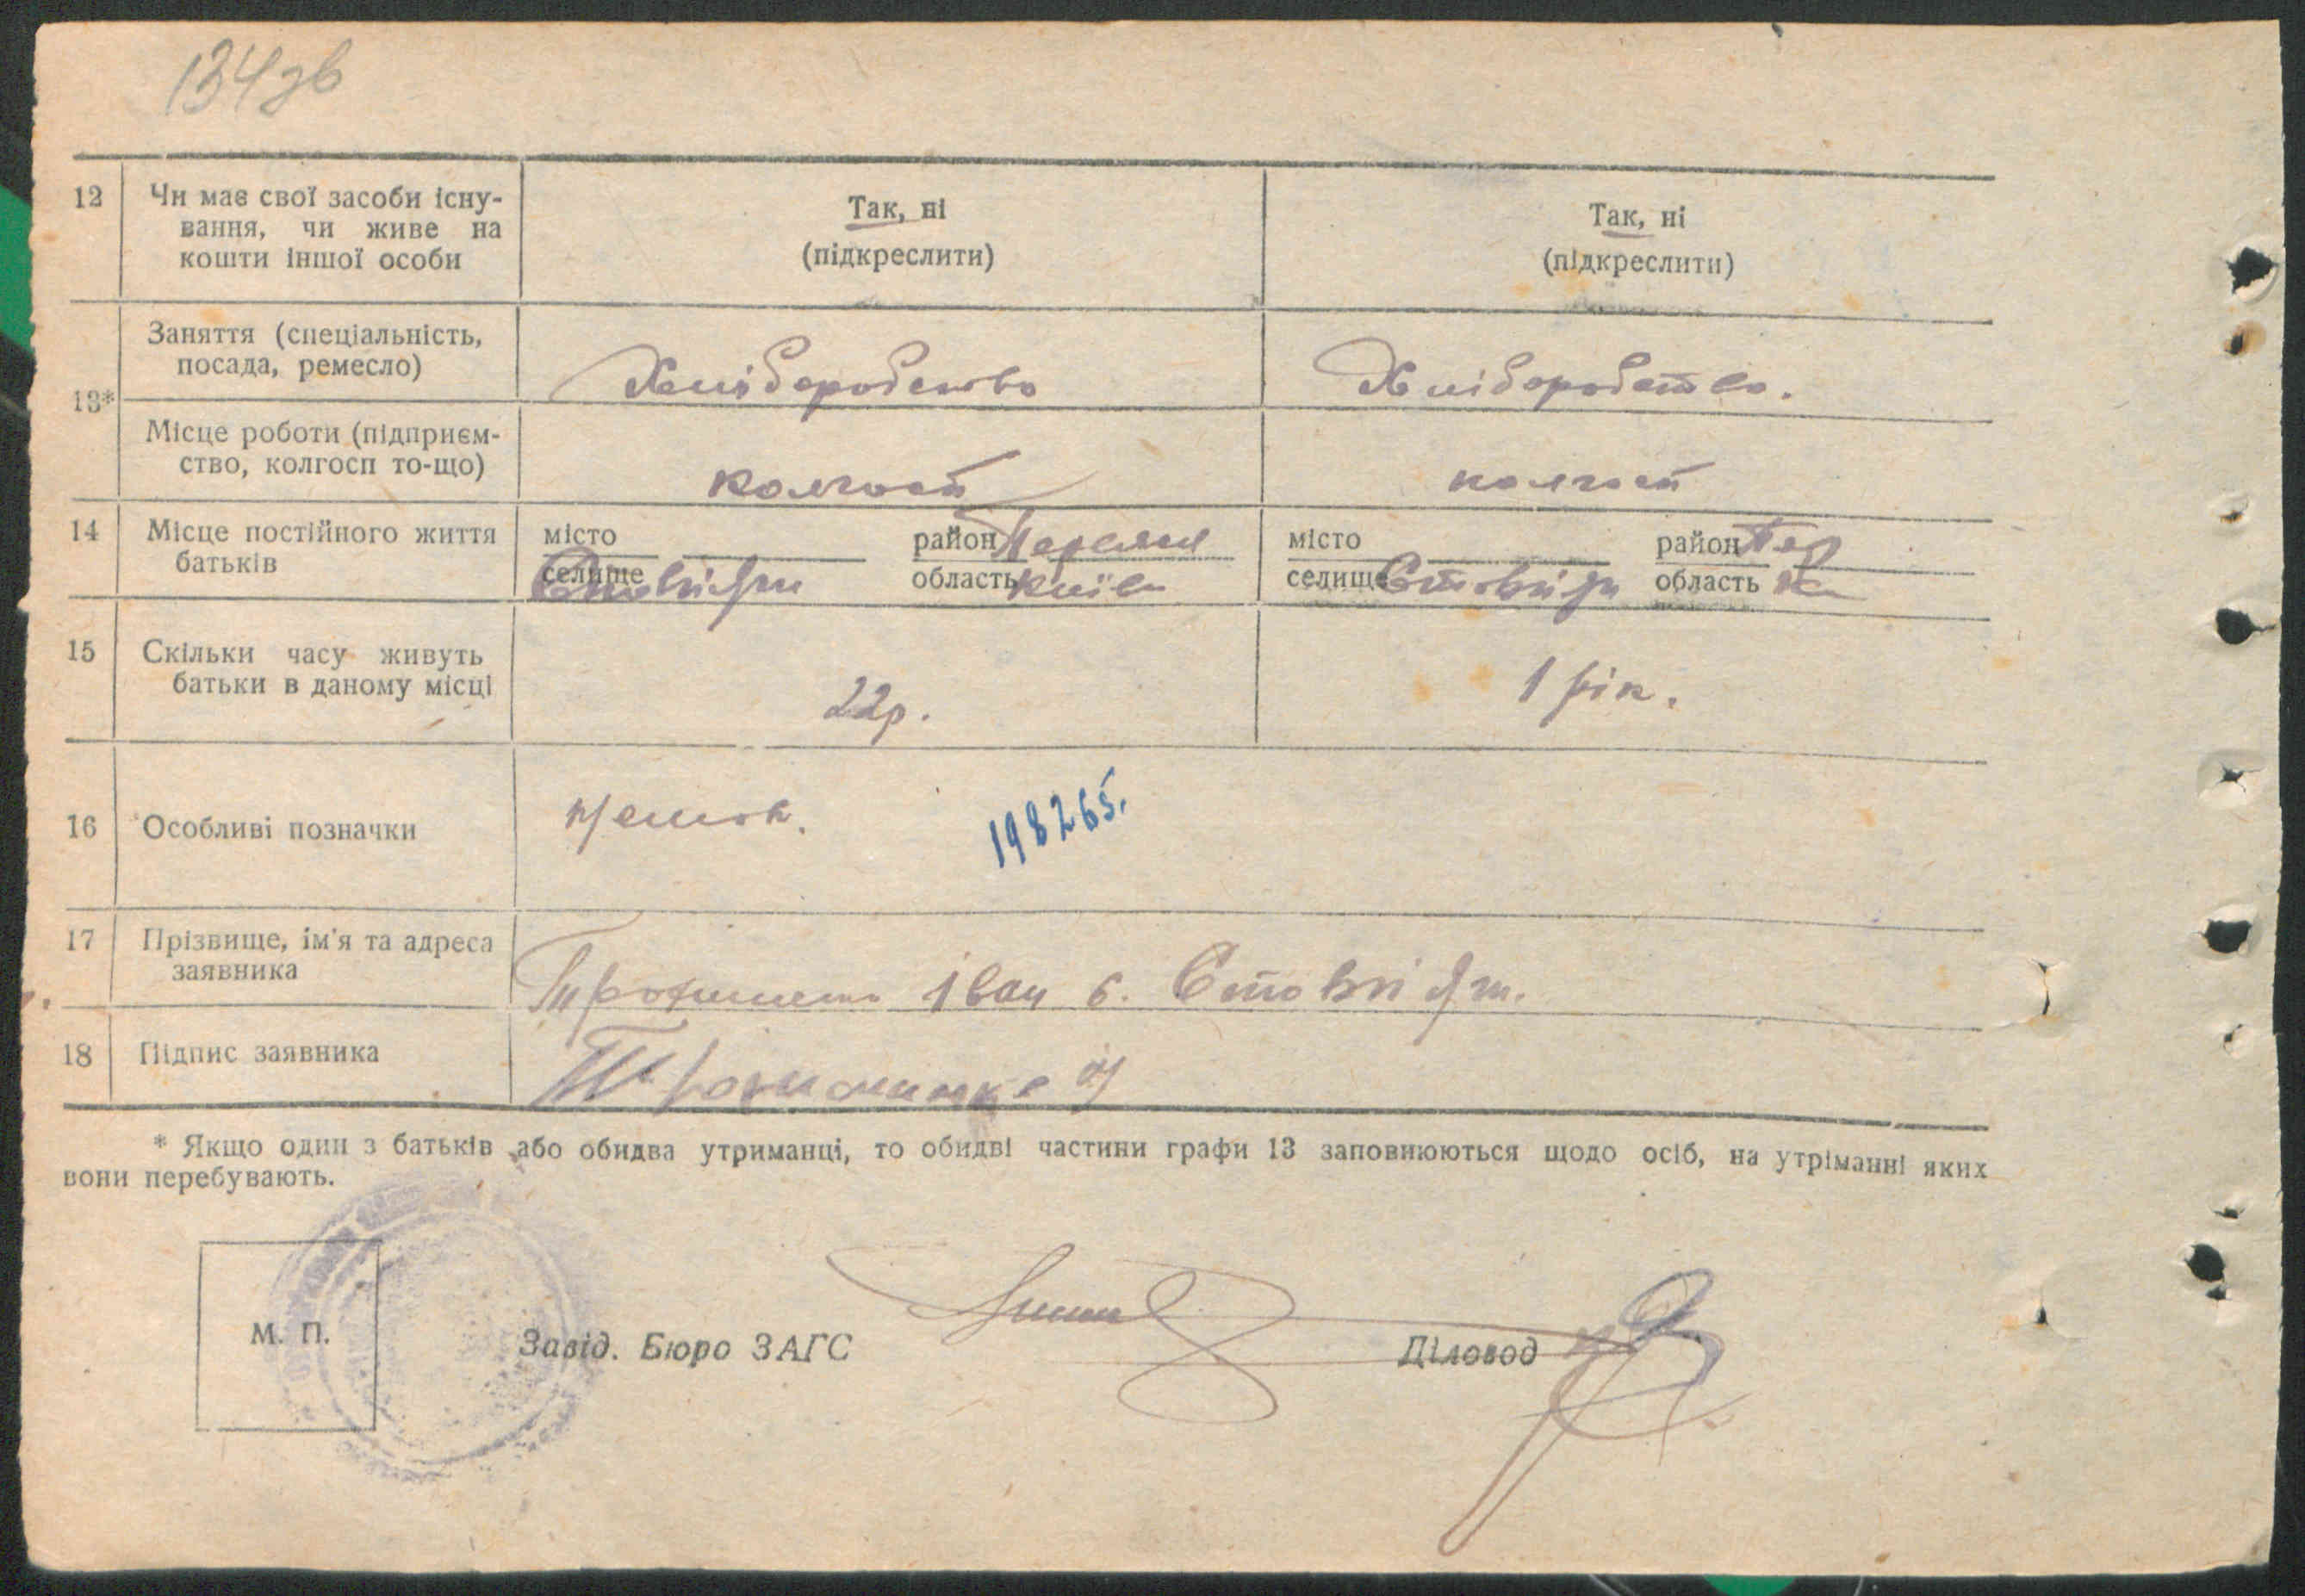 134зв
12 Чи має свої засоби існу-
вання, чи живе на
кошти іншої особи
Так, ні
(підкреслити)
Так, ні
(підкреслити)
13*
Заняття (спеціальність,
посада, ремесло)
Хліборобство
Хліборобство.
Місце роботи (підприєм-
ство, колгосп то-що)
колгосп
колгосп
14 Місце постійного життя
батьків
місто район
селище Стовп'яги область Київ
місто район Пер
селище Стовп'яги область К
15 Скільки часу живуть
батьки в даному місці
22р.
1 рік.
16 Особливі позначки
198265.
17 Прізвище, ім'я та адреса
заявника
Іван с. Стовп'яги.
18 Підпис заявника
* Якщо один з батьків або обидва утриманці, то обидві частини графи 13 заповнюються щодо осіб, на утріманні яких
вони перебувають.
М. П.
Завід. Бюро ЗАГС
Діловод